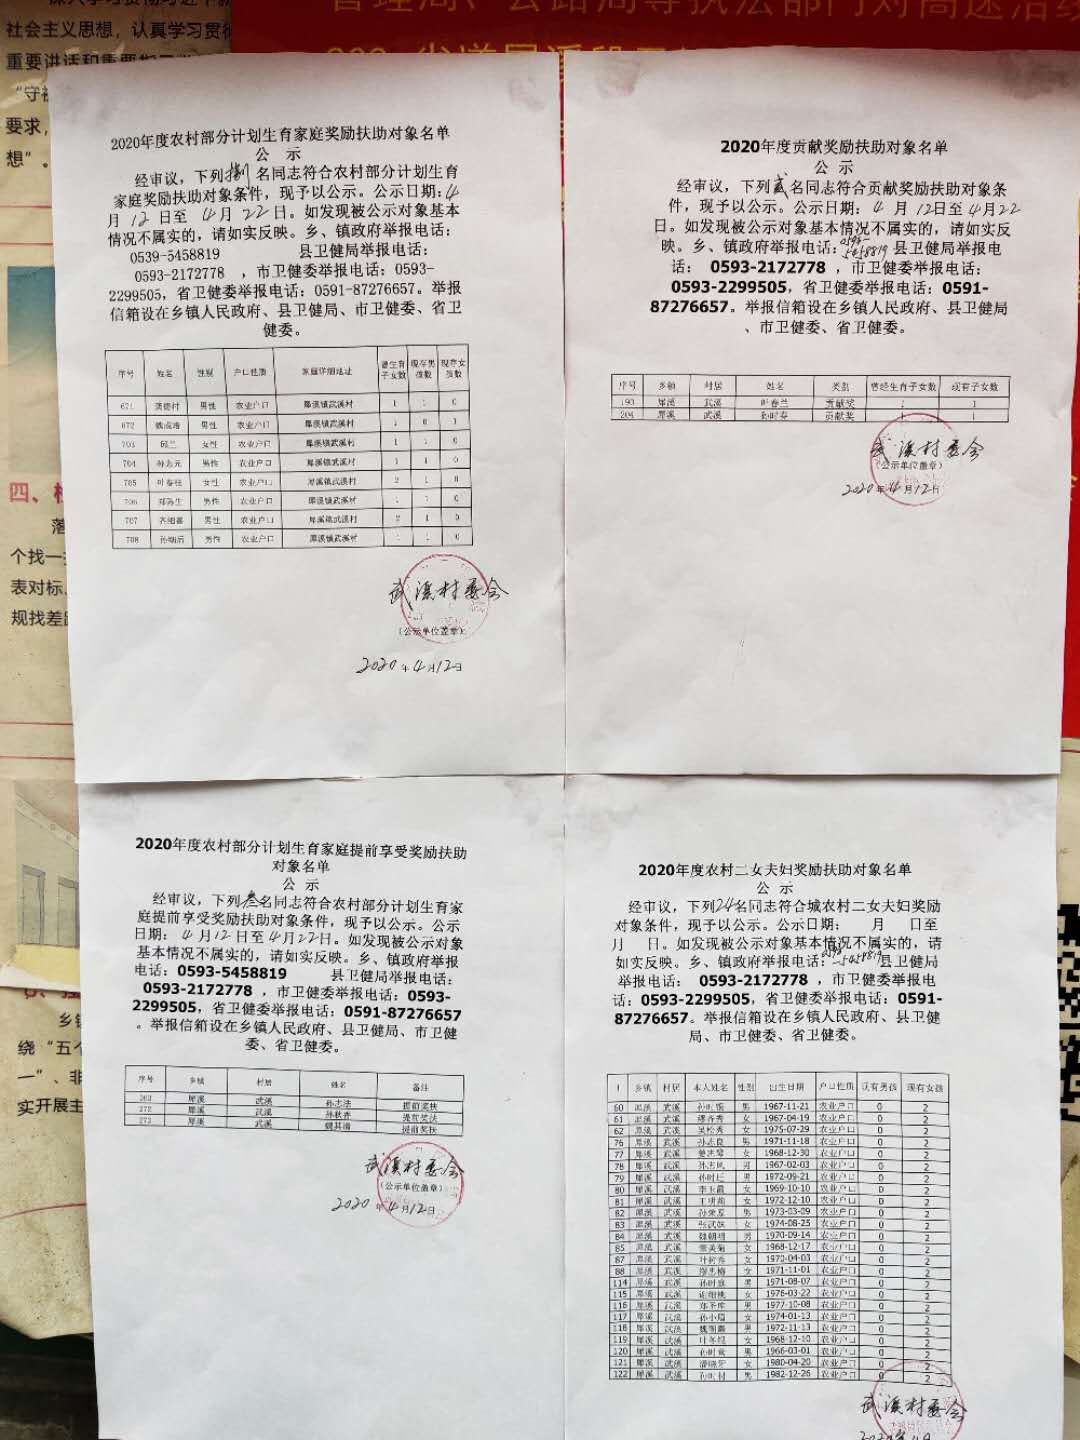 社会主义思想，认真学习贯彻
要求，
想”。
个找一
表对标、
规找差距
2020年度农村部分计划生育家庭奖励扶助对象名单
公 示
经审议，下列捌名同志符合农村部分计划生育
家庭奖励扶助对象条件，现予以公示。公示日期：4
月12日至4月22日。如发现被公示对象基本
情况不属实的，请如实反映。乡、镇政府举报电话：
0539-5458819 县卫健局举报电话：
0593-2172778 ，市卫健委举报电话：0593-
2299505，省卫健委举报电话：0591-87276657。举报
信箱设在乡镇人民政府、县卫健局、市卫健委、省卫
健委。
序号 姓名 性别 户口性质 家庭详细地址 曾生育子女数 现存男孩数 现存女孩数
671 男性 农业户口 犀溪镇武溪村 1 1 0
672 男性 农业户口 犀溪镇武溪村 1 0 1
703 女性 农业户口 犀溪镇武溪村 1 1 0
704 孙志元 男性 农业户口 犀溪镇武溪村 1 1 0
705 叶春桂 女性 农业户口 犀溪镇武溪村 2 1 0
706 男性 农业户口 犀溪镇武溪村 1 1 0
707 男性 农业户口 犀溪镇武溪村 2 1 0
708 男性 农业户口 犀溪镇武溪村 1 1 0
武溪村委会
（公示单位盖章）
2020年4月12日
2020年度贡献奖励扶助对象名单
公 示
经审议，下列贰名同志符合贡献奖励扶助对象条
件，现予以公示。公示日期：4月12日至4月22
日。如发现被公示对象基本情况不属实的，请如实反
映。乡、镇政府举报电话：0593-5458819县卫健局举报电
话： 0593-2172778 ，市卫健委举报电话：
0593-2299505，省卫健委举报电话：0591-
87276657。举报信箱设在乡镇人民政府、县卫健局
、市卫健委、省卫健委。
序号 乡镇 村居 姓名 类别 曾经生育子女数 现有子女数
193 犀溪 武溪 叶春兰 贡献奖 1 1
204 犀溪 武溪 孙时春 贡献奖 1 1
武溪村委会
（公示单位盖章）
2020年4月12日
2020年度农村部分计划生育家庭提前享受奖励扶助
对象名单
公 示
经审议，下列叁名同志符合农村部分计划生育家
庭提前享受奖励扶助对象条件，现予以公示。公示
日期：4月12日至4月22日。如发现被公示对象
基本情况不属实的，请如实反映。乡、镇政府举报
电话：0593-5458819 县卫健局举报电话：
0593-2172778 ，市卫健委举报电话：0593-
2299505，省卫健委举报电话：0591-87276657
。举报信箱设在乡镇人民政府、县卫健局、市卫健
委、省卫健委。
序号 乡镇 村居 姓名 备注
犀溪 武溪 提前奖扶
272 犀溪 武溪 孙秋香 提前奖扶
273 犀溪 武溪 提前奖扶
武溪村委会
（公示单位盖章）
2020年4月12日
2020年度农村二女夫妇奖励扶助对象名单
公 示
经审议，下列24名同志符合城农村二女夫妇奖励
扶助对象条件，现予以公示。公示日期： 月 日至
月 日。如发现被公示对象基本情况不属实的，请
如实反映。乡、镇政府举报电话：0593-5458819县卫健局
举报电话： 0593-2172778 ，市卫健委举报电
话：0593-2299505，省卫健委举报电话：0591-
87276657。举报信箱设在乡镇人民政府、县卫健
局、市卫健委、省卫健委。
乡镇 村居 本人姓名 性别 出生日期 户口性质 现有男孩 现有女孩
60 犀溪 武溪 男 1967-11-21 农业户口 0 2
61 犀溪 武溪 女 1967-04-19 农业户口 0 2
62 犀溪 武溪 吴松秀 女 1975-07-29 农业户口 0 2
76 犀溪 武溪 孙志良 男 1971-11-18 农业户口 0 2
77 犀溪 武溪 女 1968-12-30 农业户口 0 2
78 犀溪 武溪 孙志凤 男 1967-02-03 农业户口 0 2
79 犀溪 武溪 男 1972-09-21 农业户口 0 2
80 犀溪 武溪 李玉霞 女 1969-10-10 农业户口 0 2
81 犀溪 武溪 女 1972-12-10 农业户口 0 2
82 犀溪 武溪 男 1973-03-09 农业户口 0 2
83 犀溪 武溪 女 1974-08-25 农业户口 0 2
84 犀溪 武溪 男 1970-09-14 农业户口 0 2
85 犀溪 武溪 女 1968-12-17 农业户口 0 2
87 犀溪 武溪 女 1970-04-03 农业户口 0 2
88 犀溪 武溪 女 1971-11-01 农业户口 0 2
114 犀溪 武溪 男 1971-08-07 农业户口 0 2
115 犀溪 武溪 女 1976-03-22 农业户口 0 2
116 犀溪 武溪 男 1977-10-08 农业户口 0 2
117 犀溪 武溪 孙小眉 女 1974-01-13 农业户口 0 2
118 犀溪 武溪 男 1972-11-13 农业户口 0 2
119 犀溪 武溪 女 1968-12-10 农业户口 0 2
120 犀溪 武溪 男 1966-03-01 农业户口 0 2
121 犀溪 武溪 女 1980-04-20 农业户口 0 2
122 犀溪 武溪 孙时村 男 1982-12-26 农业户口 0 2
武溪村委会